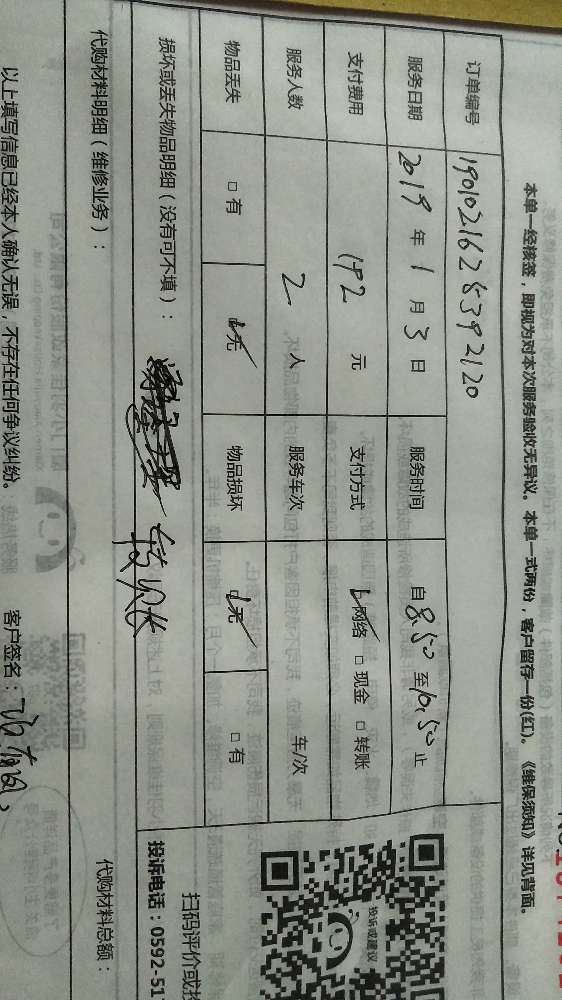 本单一经核签，即视为对本次服务验收无异议。本单一式两份，客户留存一份(红)。《维保须知》详见背面。
订单编号 19010216285392120
服务日期 2019 年 1 月 3 日 服务时间 自 8:50 至 10:50 止
支付费用 192 元 支付方式 网络 □ 现金 □ 转账
服务人数 2 人 服务车次 车/次
物品丢失 □ 有 无 物品损坏 无 □ 有
损坏或丢失物品明细（没有可不填）：
扫码评价或投
投诉或建议
投诉电话：0592-51
代购材料明细（维修业务）： 代购材料总额：
以上填写信息已经本人确认无误，不存在任何争议纠纷。 客户签名：